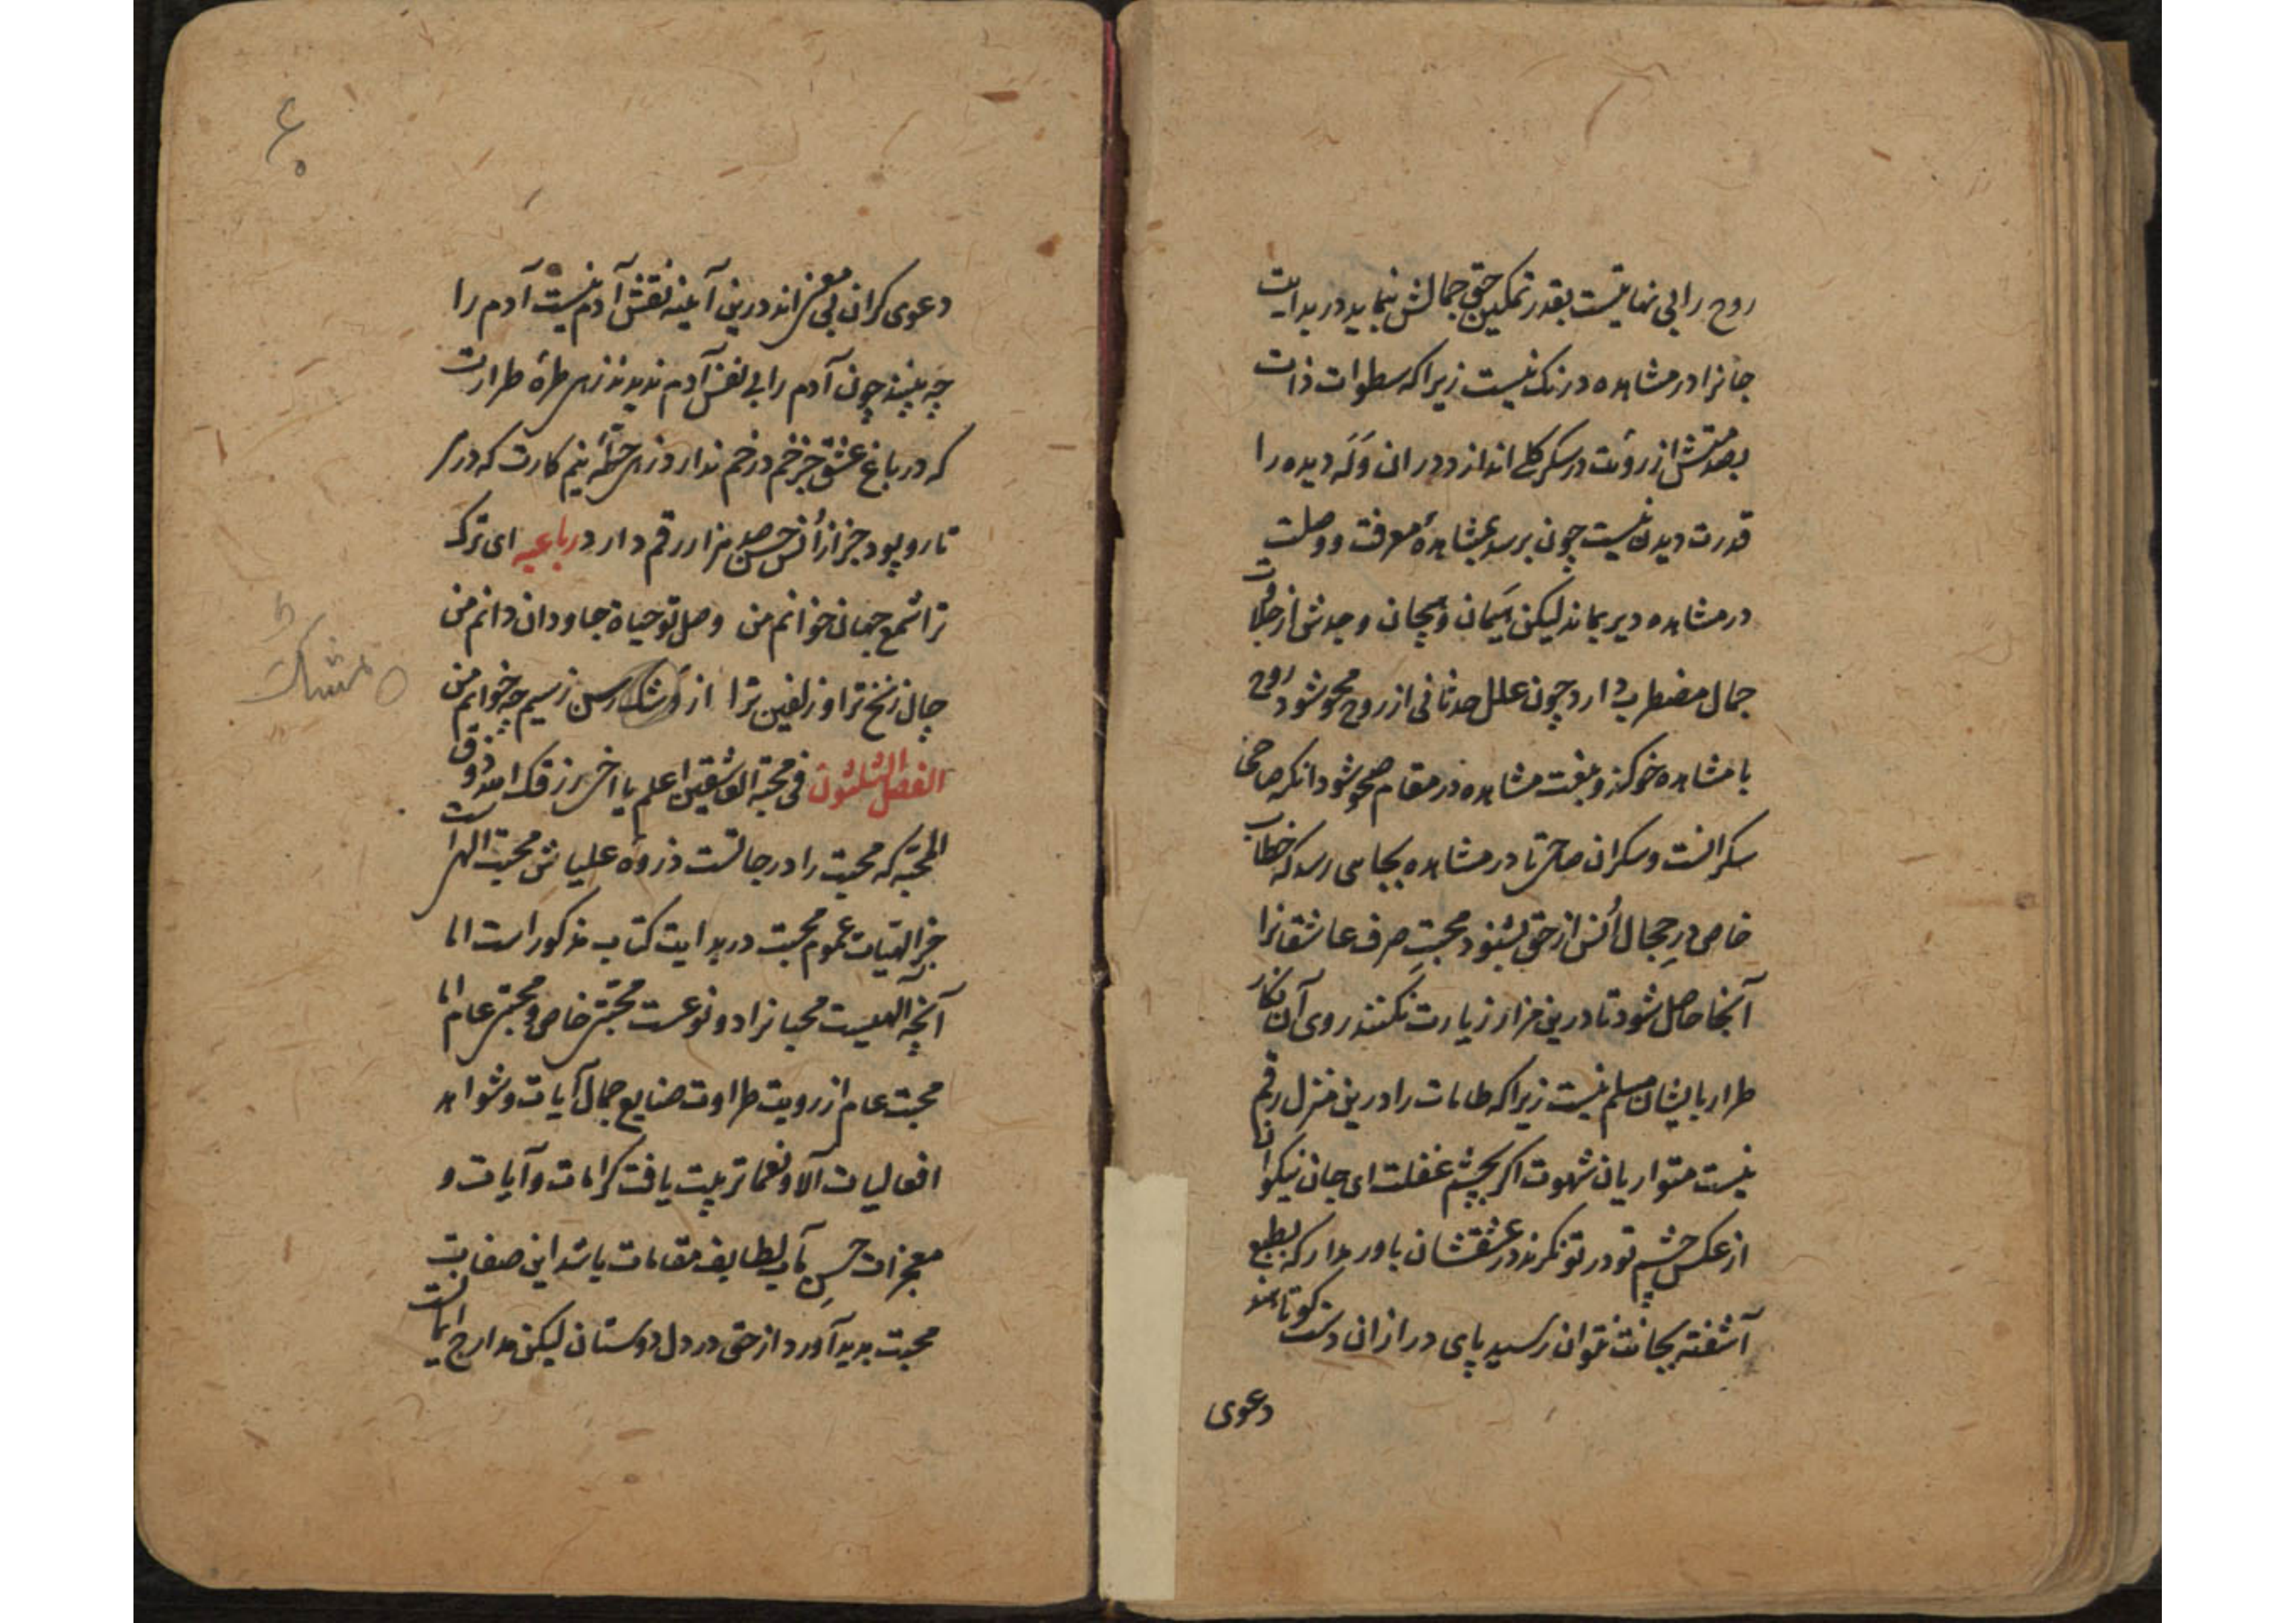 روح را بی نهایتست بقدر تمکین حق جمالش بنماید در بدایت
جانرا در مشاهده درنک نیست زیرا که سطوات ذات
از رویت در سکر کلی اندازد در ان وله دیده را
قدرت دیدن نیست چون برسد بمشاهدهٔ معرفت و وصلت
در مشاهده دیر بماند لیکن هیمان و هیجان وجدش از جلال
جمال مضطرب دارد چون علل حدثانی از روح محو شود روح
با مشاهده خو کند و بنعت مشاهده در مقام صحو شود انکه صاحی
سکرانست و سکران صاحی تا در مشاهده بجایی رسد که خطاب
خاص در حجال اُنس از حق بشنود محبت صرف عاشقانرا
آنجا حاصل شود تا درین مزار زیارت نکنند روی آن نکار
طرار بایشان مسلم نیست زیرا که طامات را درین منزل رقم
نیست متواریان شهوت اکر بچشم غفلت ای جان نیکوان
از عکس چشم تو در تو نکرند در عشقشان باور مدار که بطبع
آشفته بجانت نتوان رسید پای دراز ان دست کوتاهند
دعوی
۶۰
دعوی کران بی مغز اند درین آینه نقش آدم نیست آدم را
چه بینند چون آدم را بی نقش آدم ندیدند زهی طرهٔ طرارت
که در باغ عشق جز خم در خم ندارد زهی کارت که در
تار و پود جز از اُنس حسن صد هزار رقم دارد رباعیه ای ترک
ترا شمع جهان خوانم من وصل تو حیاة جاودان دانم من
چال زنخ ترا و زلفین ترا از مشک رسن ز سیم چه خوانم من
مشک
الفصل الثلثون فی محبة العاشقین اعلم یا اخی رزقک الله ذوق
المحبة که محبت را درجاتست ذروهٔ علیاش محبت الهی است
جز الهیات عموم محبت در بدایت کتاب مذکور است اما
آنچه الهیست محبانرا دو نوعست محبتی خاص و محبتی عام اما
محبت عام از رویت طراوت صنایع جمال آیات و شواهد
افعالیات آلا و نعما تربیت یافت کرامات و آیات و
معجزات حسن مآب لطایف مقامات باشد این صفات
محبت پدید آورد از حق در دل دوستان لیکن مدارج ایمانست